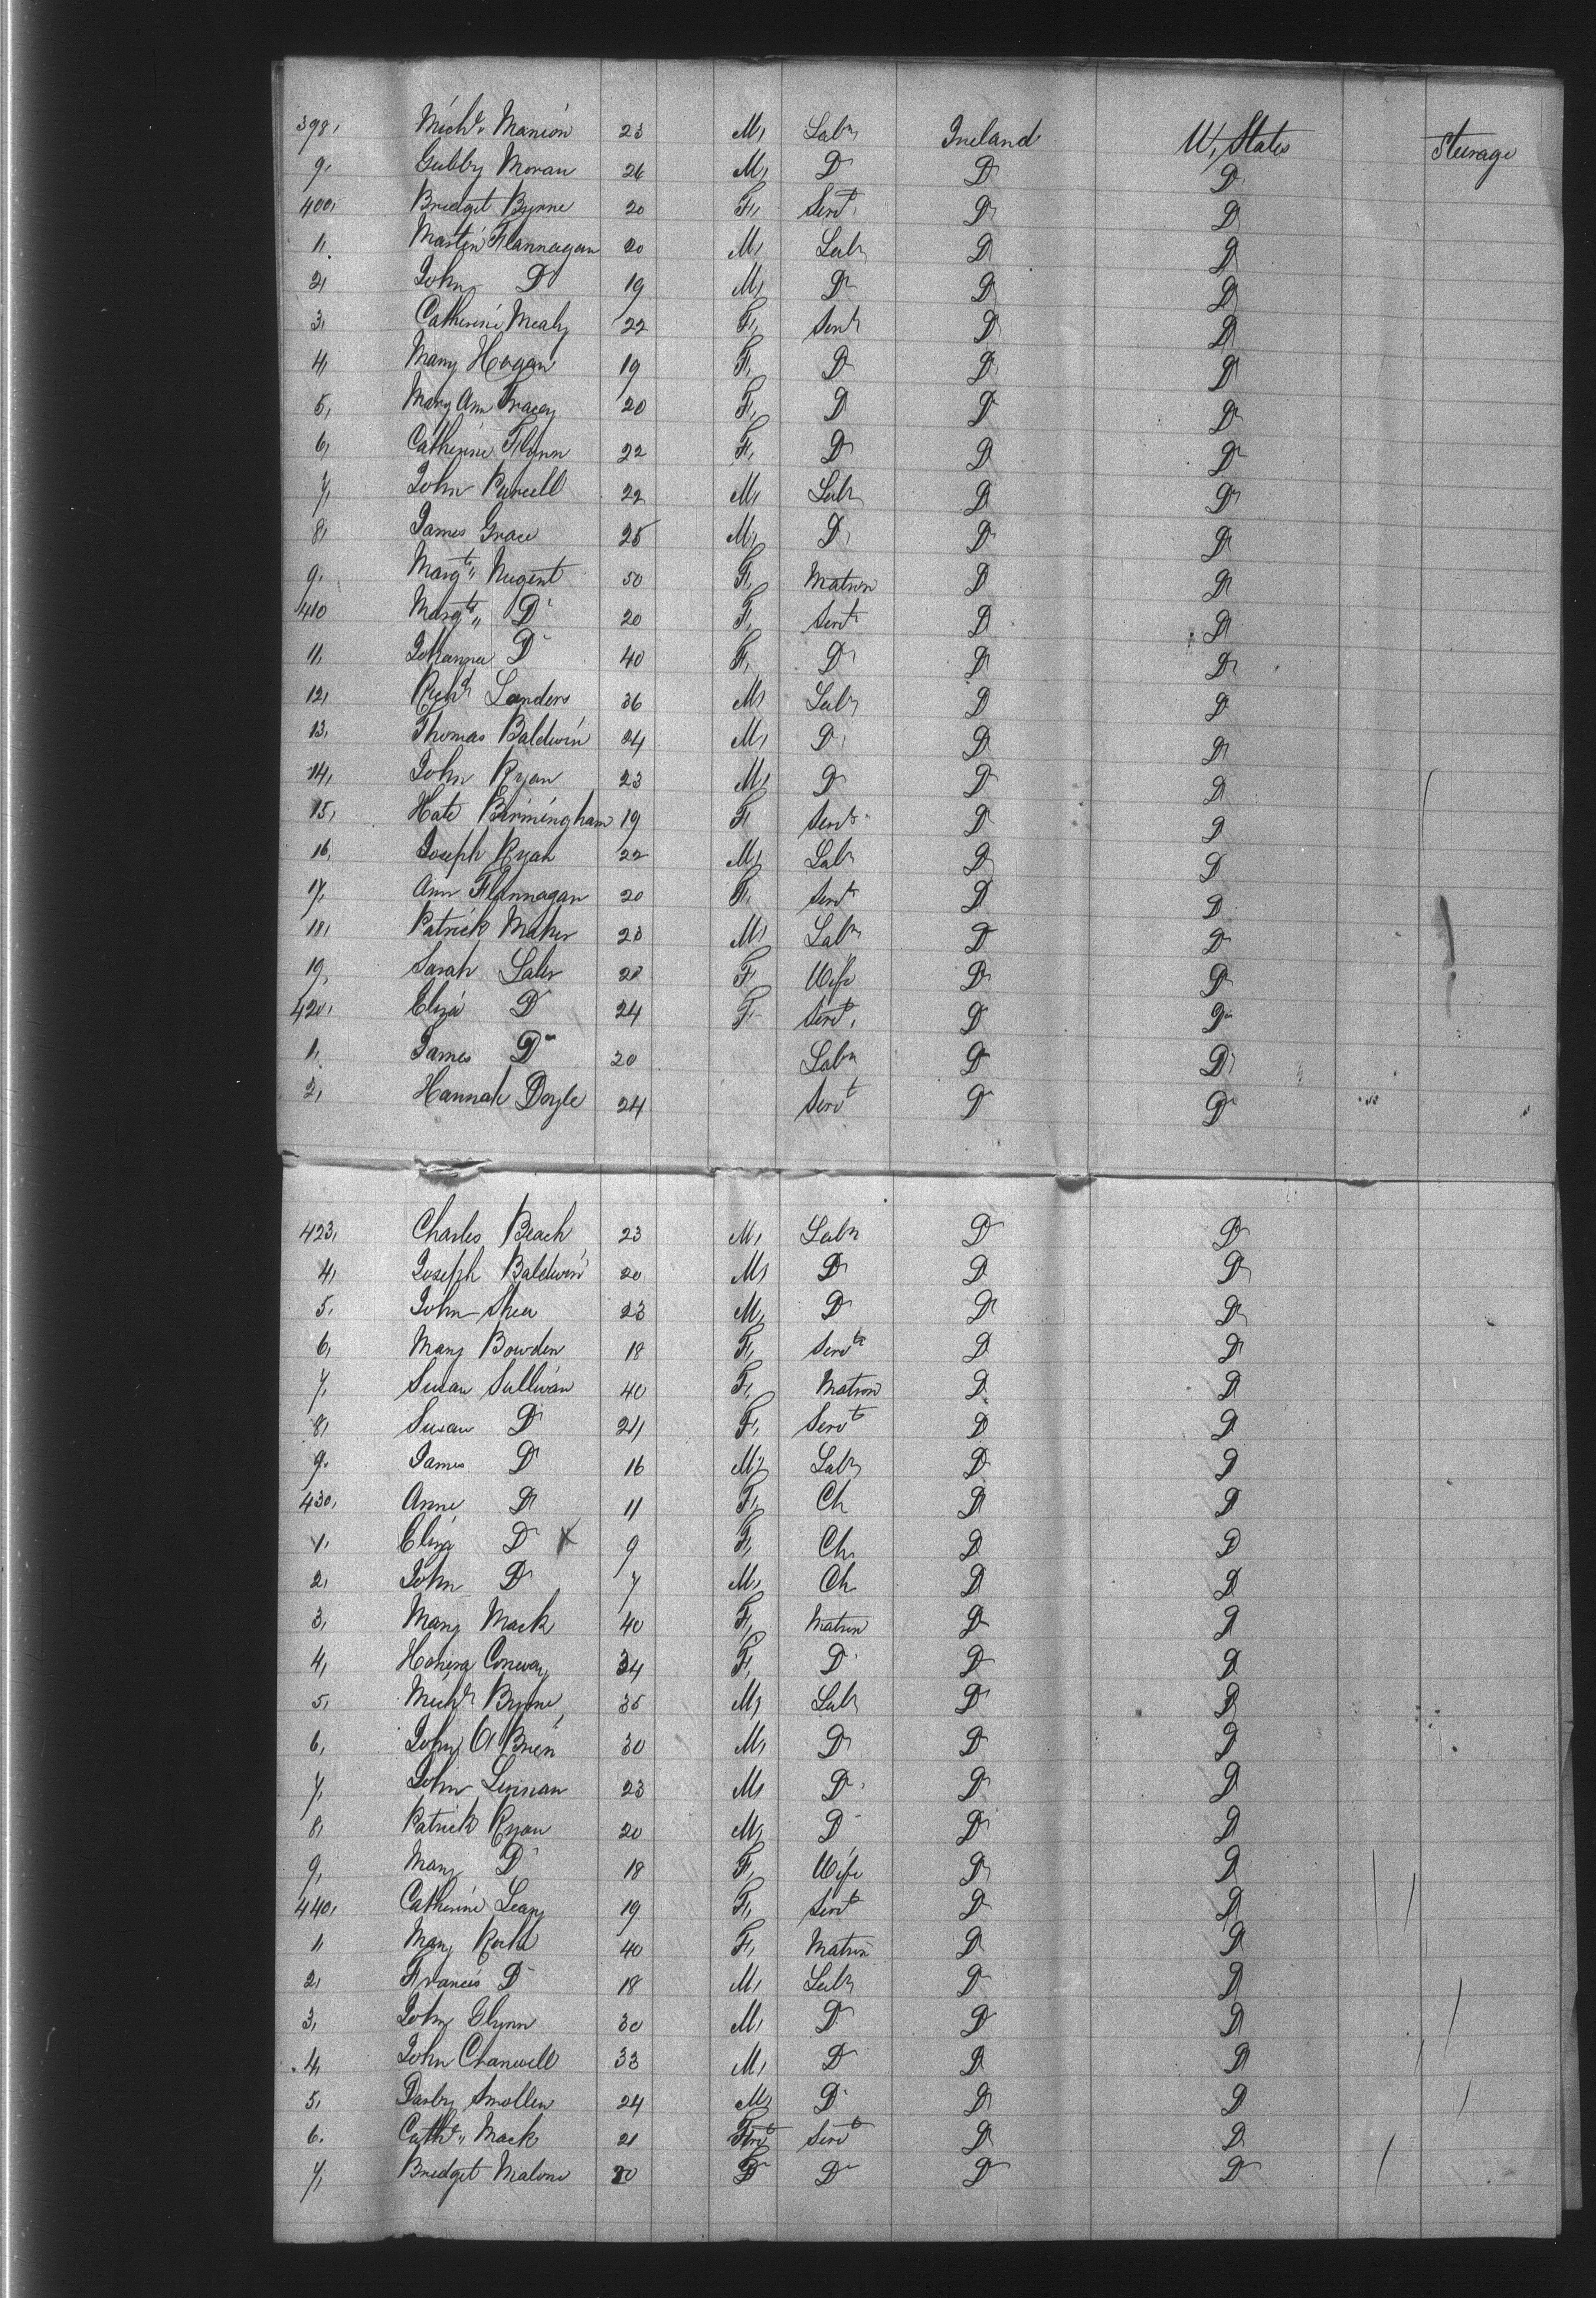 398, Michl. Manion 23 M, Labr Ireland U, States Steerage
9, Gubby Moran 26 M, Do Do Do
400, Bridget Byrne 20 F, Servt Do Do
1, Martin Flannagan 20 M, Labr Do Do
2, John Do 19 M, Do Do Do
3, Catherine Mealy 22 F, Servt Do Do
4, Mary Hogan 19 F, Do Do Do
5, Mary Ann Tracey 20 F, Do Do Do
6, Catherine Flynn 22 F, Do Do Do
7, John Purcell 22 M, Labr Do Do
8, James Grace 25 M, Do Do Do
9, Margt" Nugent 50 F, Matron Do Do
410 Margt" Do 20 F, Servt Do Do
11, Johanna Do 40 F, Do Do Do
12, Richd Landers 36 M, Labr Do Do
13, Thomas Baldwin 24 M, Do Do Do
14, John Ryan 23 M, Do Do Do
15, Kate Birmingham 19 F Servt Do Do
16, Joseph Ryan 22 M, Labr Do Do
17, Ann Flannagan 20 F, Servt Do Do
18, Patrick Maher 23 M, Labr Do Do
19, Sarah Lalor F Wife Do Do
420, Eliza Do 24 F Servt, Do Do
1, James Do 20 Labr Do Do
2, Hannah Doyle 24 Servt Do Do
423, Charles Beach 23 M, Labr Do Do
4, Joseph Baldwin 20 M, Do Do Do
5, John Shea 23 M, Do Do Do
6, Mary Bowden 18 F, Servt Do Do
7, Susan Sullivan 40 F, Matron Do Do
8, Susan Do F, Servt Do Do
9, James Do 16 M, Labr Do Do
430, Anne Do 11 F, Ch Do Do
1, Eliza Do X 9 F, Ch Do Do
2, John Do 7 M, Ch Do Do
3, Mary Mack 40 F, Matron Do Do
4, Honora Conway 34 F, Do Do Do
5, Michl Byrne, 35 M, Labr Do Do
6, John O'Brien 30 M, Do Do Do
7, John Lennan 23 M, Do Do Do
8, Patrick Ryan 20 M, Do Do Do
9, Mary Do 18 F, Wife Do Do
440, Catherine Leary 19 F, Servt Do Do
1, Mary Roche 40 F, Matron Do Do
2, Francis Do 18 M, Labr Do Do
3, John Glynn 30 M, Do Do Do
4, John Chanwell 33 M, Do Do Do
5, Darby Smollen 24 M, Do Do Do
6. Cathe" Mack 21 Servt Do Do
7, Bridget Malone 20 Do Do Do